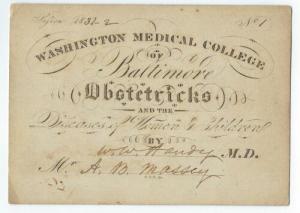 1831-2 No 1
WASHINGTON MEDICAL COLLEGE
OF
Baltimore
Obstetricks
AND THE
Diseases of Women & Children
BY
W. W. Handy M.D.
Mr. A. B. Massey